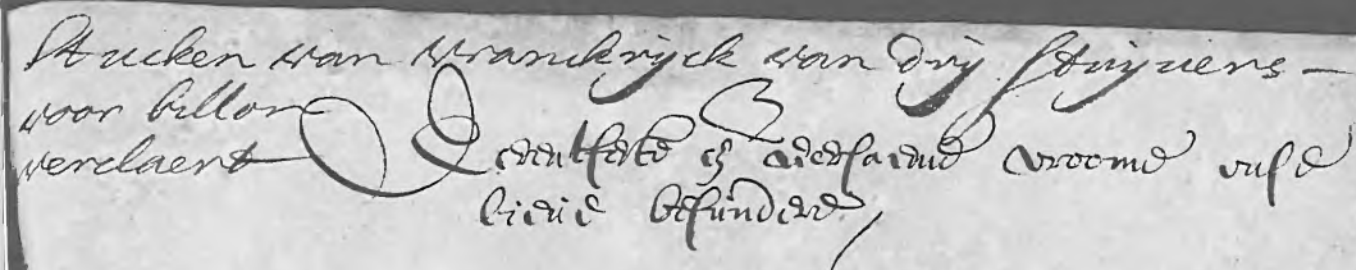 Stucken van Vranckrijck van drij stuijvers –
voor billon
verclaert
eerentfeste en̄ voorsienige vroome onse
lieve besundere,